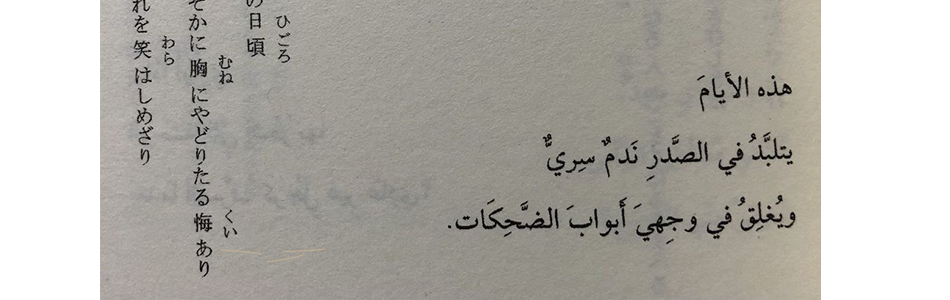 هذه الأيامَ
يتلبَّدُ في الصَّدرِ نَدمٌ سِريٌّ
ويُغلِقُ في وجِهيَ أَبوابَ الضَّحِكَات.
ひごろ
の日頃
むね くい
そかに胸にやどりたる悔あり
わら
れを笑はしめざり